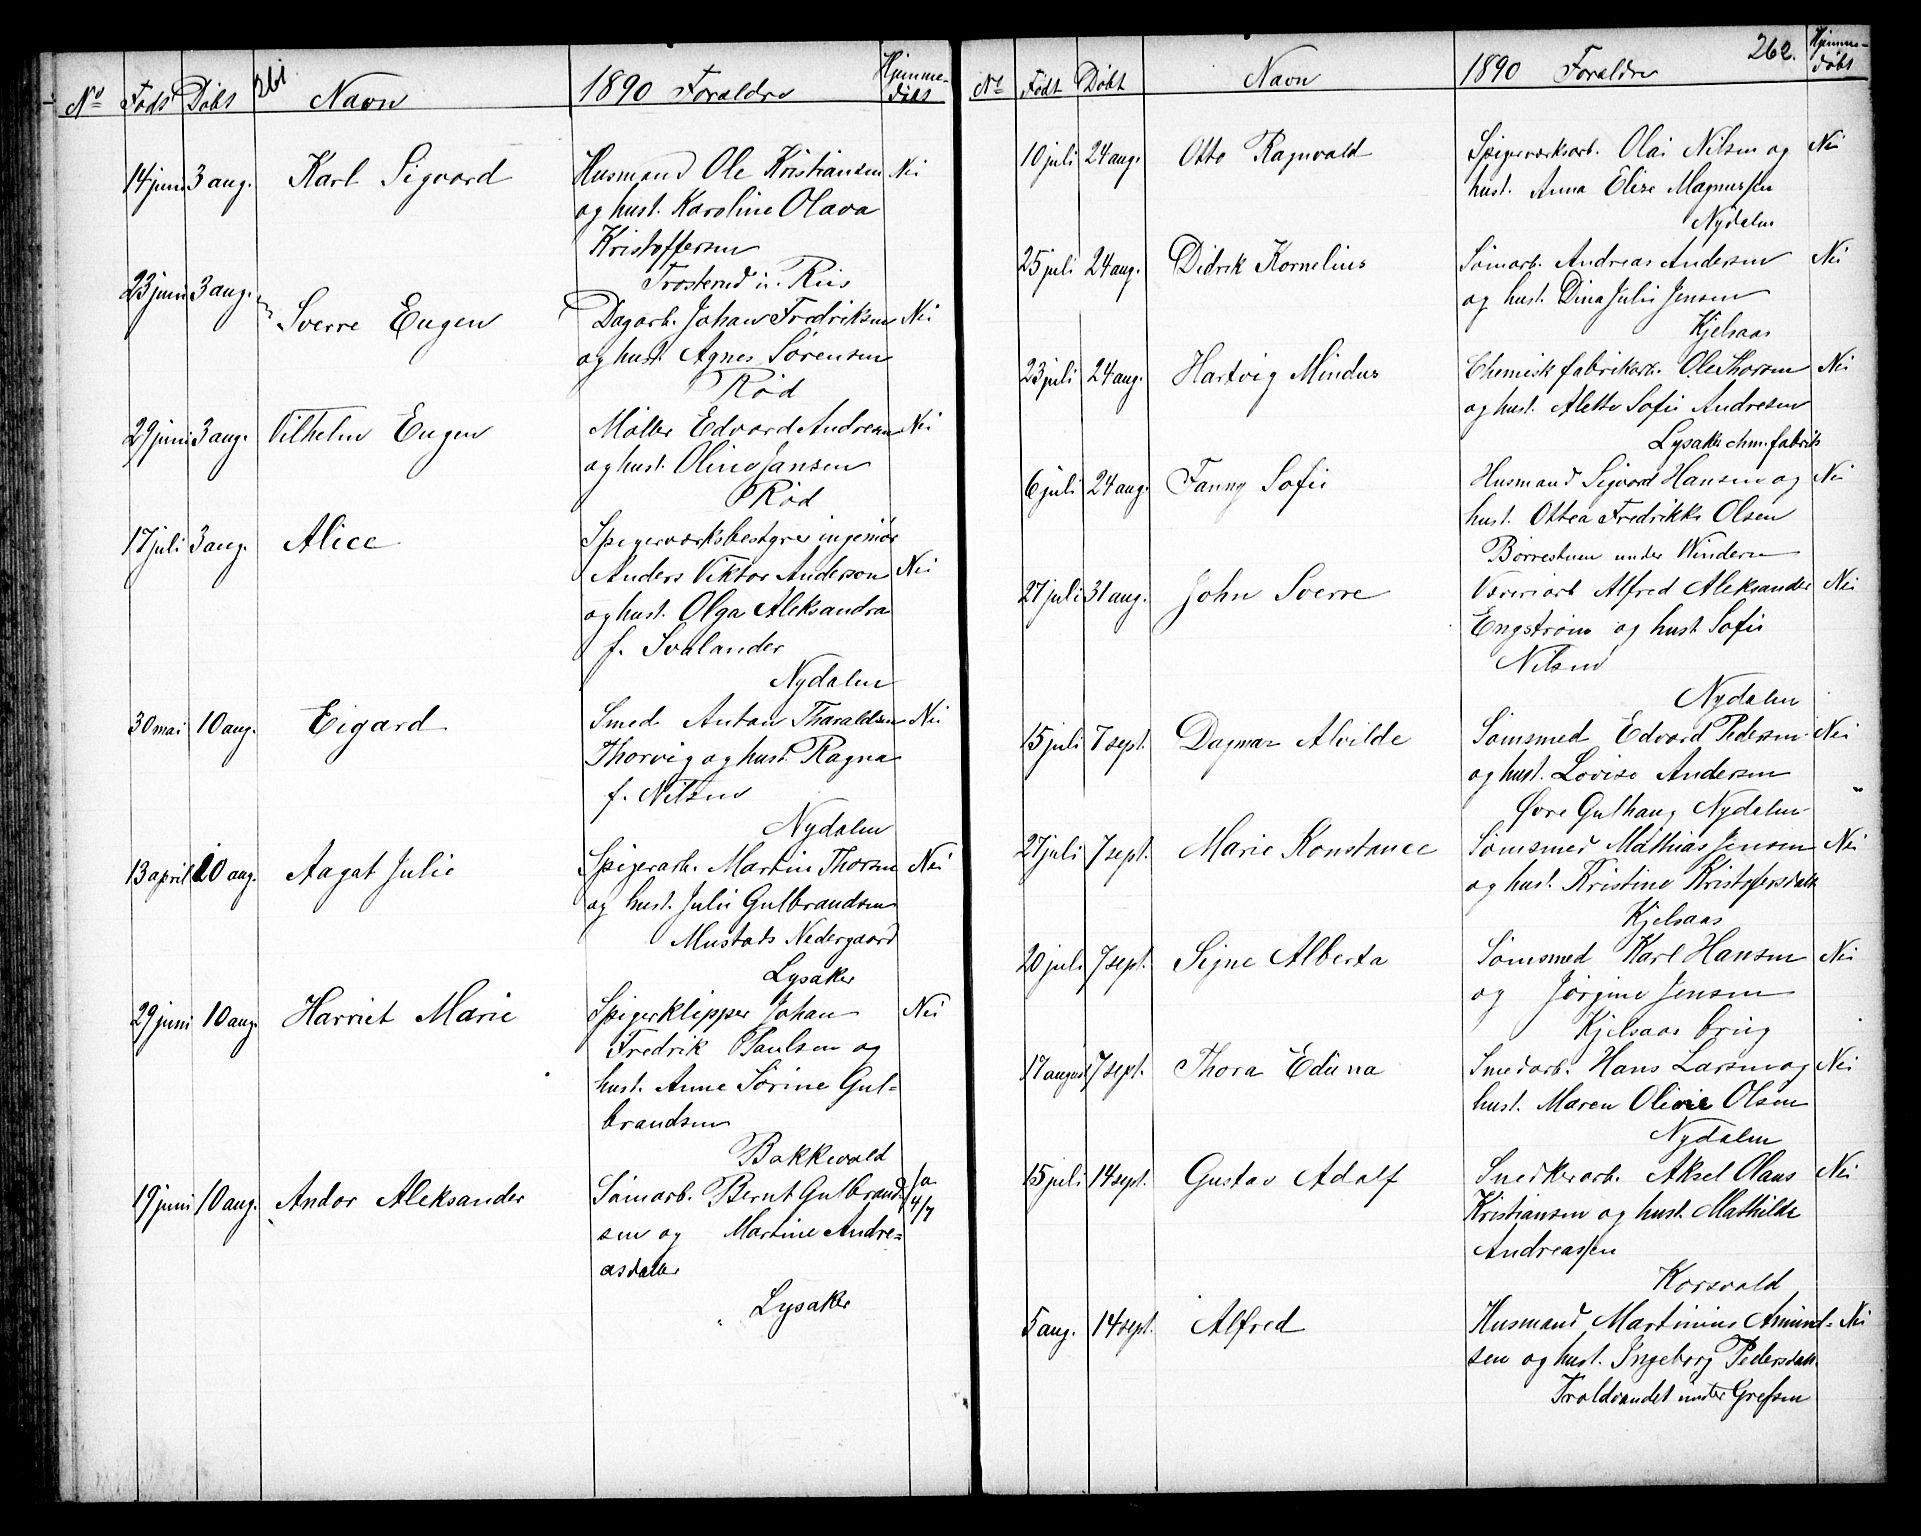 261
No Født Døbt Navn 1890 Forældre Hjemmedøbt
14 juni 3 aug. Karl Sigvard Husmand Ole Kristiansen Nei
og hust. Karoline Olava
Kristoffersen
Trosterud u. Riis
23 juni 3 aug. Sverre Eugen Dagarb. Johan Fredriksen Nei
og hust. Agnes Sørensen
Rød
29 juni 3 aug. Vilhelm Eugen Møller Edvard Andresen Nei
og hust. Oline Jansen
Rød
17 juli 3 aug. Alice Spigerværksbestyrer ingeniør
Anders Viktor Anderson Nei
og hust. Olga Aleksandra
f. Svalander
Nydalen
30 mai 10 aug. Eigard Smed Anton Tharaldsen Nei
Thorvig og hust. Ragna
f. Nilsen
Nydalen
13 april 10 aug. Aagat Julie Spigerarb. Martin Thorsen Nei
og hust. Julie Gulbrandsen
Mustads Nedergaard
Lysaker
29 juni 10 aug. Harriet Marie Spigerklipper Johan Nei
Fredrik Paulsen og
hust. Anne Sørine Gul-
brandsen
Bakkevold
19 juni 10 aug. Andor Aleksander Sømarb. Bernt Gulbrand- Ja 4/7
sen og Martine Andre-
asdatter
Lysaker
262.
No Født Døbt Navn 1890 Forældre Hjemmedøbt
10 juli 24 aug. Otto Ragnvald Spigerværksarb. Olai Nilsen og Nei
hust. Anna Elise Magnussen
Nydalen
25 juli 24 aug. Didrik Kornelius Sømarb. Andreas Andersen Nei
og hust. Dina Julie Jensen
Kjelsaas
23 juli 24 aug. Hartvig Mindus Chemisk fabrikarb. Ole Thorsen Nei
og hust. Alette Sofie Andresen
Lysaker chm. fabrik
6 juli 24 aug. Fanny Sofie Husmand Sigvard Hansen og Nei
hust. Ottea Fredrikke Olsen
Børrestuen under Vinderen
27 juli 31 aug. John Sverre Væveriarb Alfred Aleksander Nei
Engstrøm og hust Sofie
Nilsen
Nydalen
15 juli 7 sept. Dagmar Alvilde Sømsmed Edvard Pedersen Nei
og hust. Lovise Andersen
Øvre Gulhaug Nydalen
27 juli 7 sept. Marie Konstance Sømsmed Mathias Jensen Nei
og hust. Kristine Kristofersdatt
Kjelsaas
20 juli 7 sept. Signe Alberta Sømsmed Karl Hansen Nei
og Jørgine Jensen
Kjelsaas brug
17 august 7 sept. Thora Eduna Smedarb. Hans Larsen og Nei
hust. Maren Olivie Olsen
Nydalen
15 juli 14 sept. Gustav Adolf Snedkerarb. Aksel Olaus Nei
Kristiansen og hust. Mathilde
Andreassen
Korsvold
5 aug. 14 sept. Alfred Husmand Martinius Amund- Nei
sen og hust. Ingeborg Pedersdatt.
Troldvandet under Grefsen